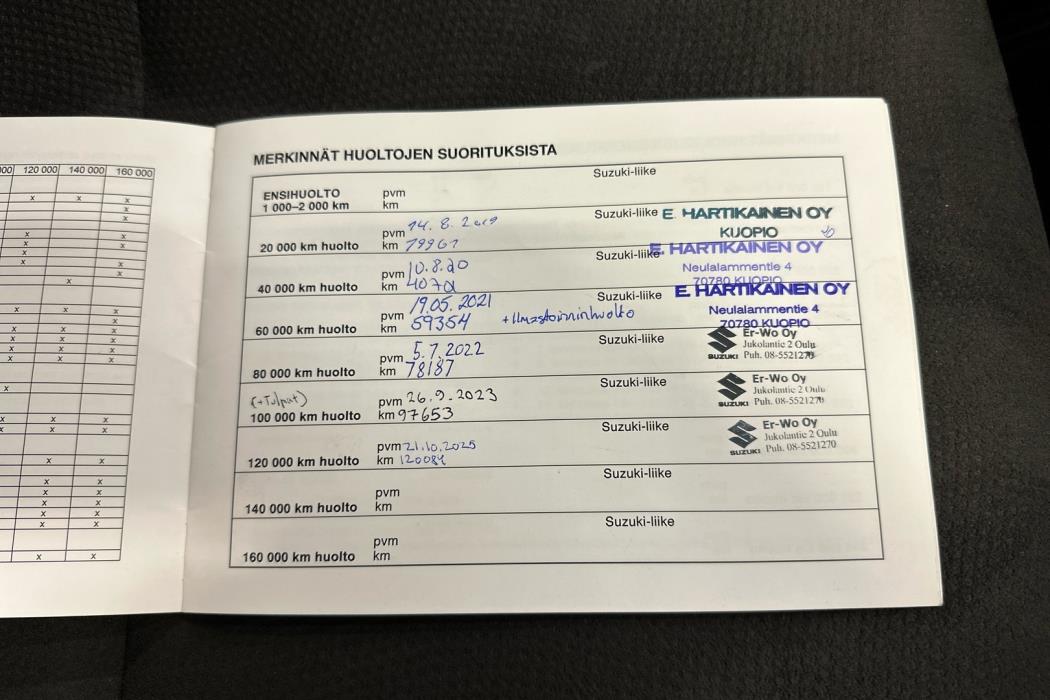 00 120 000 140 000 160 000
MERKINNÄT HUOLTOJEN SUORITUKSISTA
ENSIHUOLTO pvm Suzuki-liike
1 000–2 000 km km
pvm 14. 8. 2019 Suzuki-liike E. HARTIKAINEN OY
20 000 km huolto km KUOPIO
pvm 10.8.20 Suzuki-liike E. HARTIKAINEN OY
40 000 km huolto km Neulalammentie 4
70780 KUOPIO
pvm 19.05.2021 Suzuki-liike E. HARTIKAINEN OY
60 000 km huolto km 59354 +Ilmastoinninhuolto Neulalammentie 4
70780 KUOPIO
pvm 5.7.2022 Suzuki-liike Er-Wo Oy
80 000 km huolto km 78187 Jukolantie 2 Oulu
SUZUKI Puh. 08-5521270
(+Tulpat) pvm 26.9.2023 Suzuki-liike Er-Wo Oy
100 000 km huolto km 97653 Jukolantie 2 Oulu
SUZUKI Puh. 08-5521270
pvm 21.10.2025 Suzuki-liike Er-Wo Oy
120 000 km huolto km 120084 Jukolantie 2 Oulu
SUZUKI Puh. 08-5521270
pvm Suzuki-liike
140 000 km huolto km
pvm Suzuki-liike
160 000 km huolto km